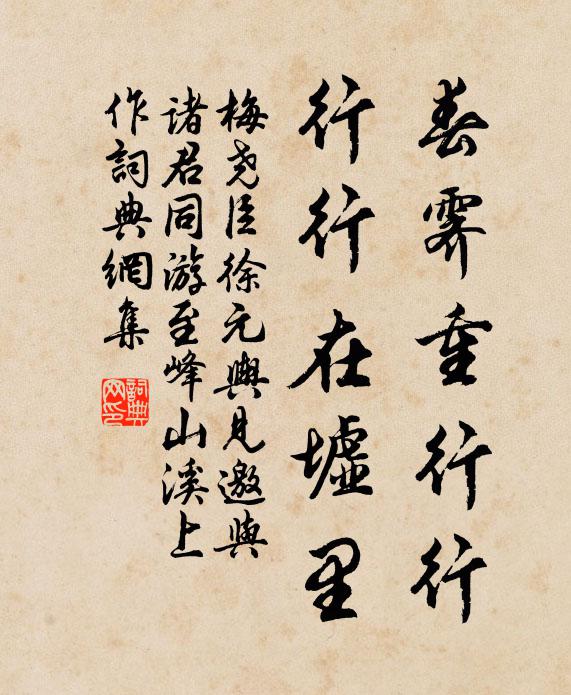 春霁重行行
行行在墟里
梅尧臣徐元舆見邀與
诸君同游至峰山溪上
作詞典網集
詞典
网印